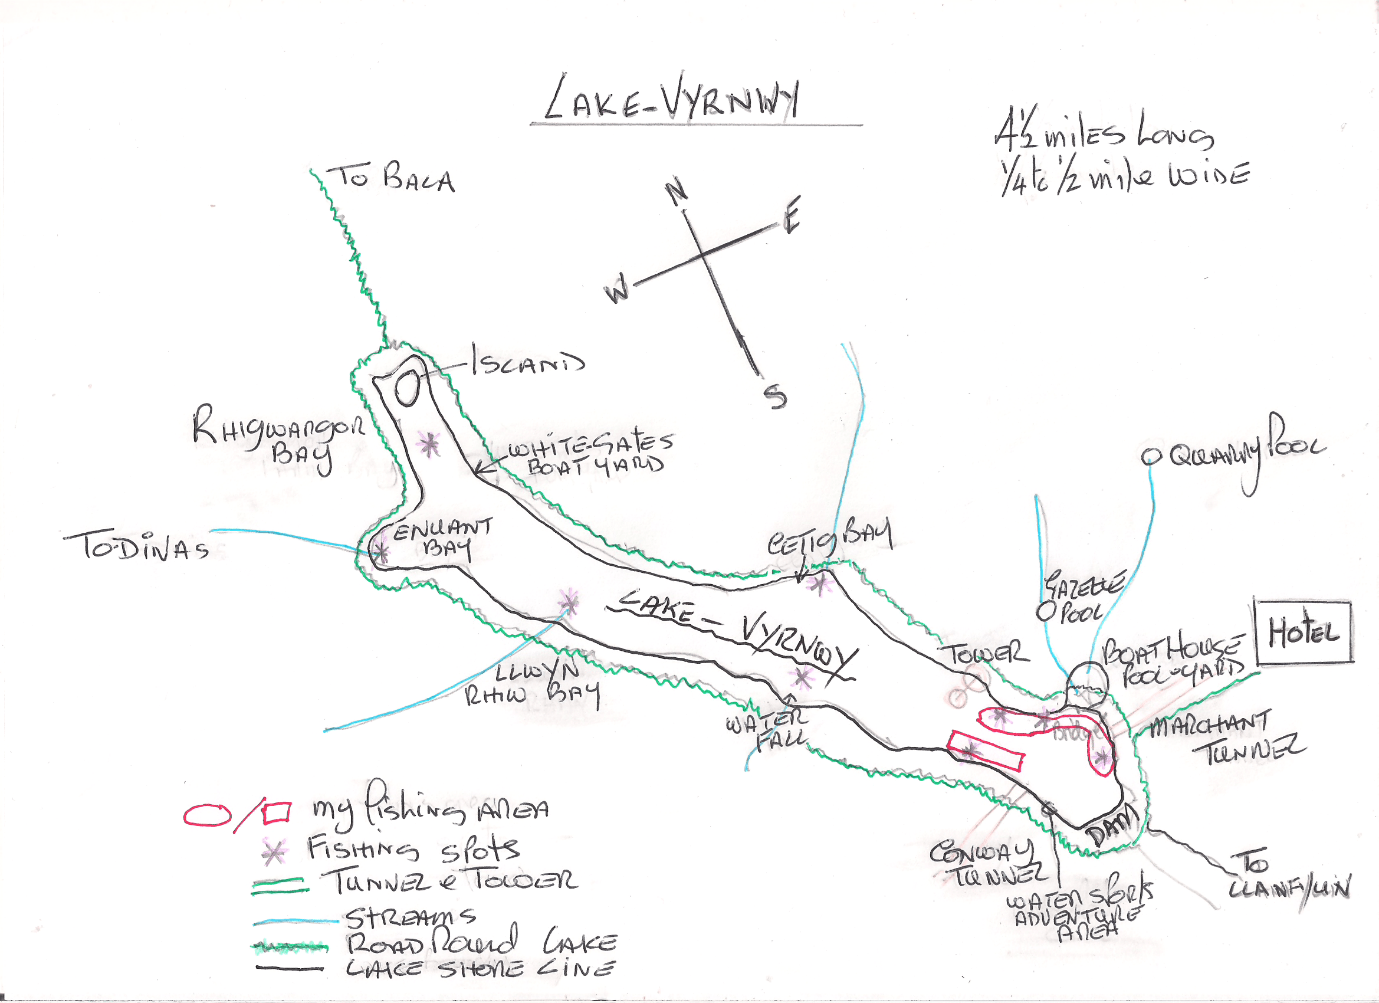 LAKE-VYRNWY
4½ miles Long
¼ to ½ mile WIDE
TO BALA
N
E
W
S
ISLAND
RHIGWARGOR
BAY
WHITE-GATES
BOAT YARD
QUARRY POOL
TO-DINAS
EUNANT
BAY
CEDIG BAY
GAZELLE
POOL
LAKE - VYRNWY
HOTEL
TOWER
BOAT HOUSE
POOL-YARD
LLWYN
RHIW BAY
WATER
FALL
MARCHANT
TUNNEL
my fishing AREA
DAM
FISHING SPOTS
CONWAY
TUNNEL
TUNNEL & TOWER
TO
LLANFYLLIN
WATER SPORTS
ADVENTURE
AREA
STREAMS
ROAD Round LAKE
LAKE SHORE LINE